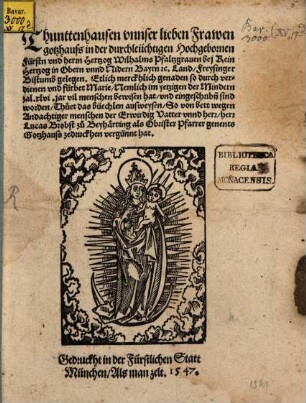 Bavar.
3000
Thunttenhausen vnnser lieben Frawen
gotzhauß in der durchleüchtigen Hochgebornen
Fürsten vnd herrn Hertzog Wilhalms Pfaltzgrauen bej Rein
Hertzog in Obern vnnd Nidern Bayrn ꝛc. Land / Freysinger
Bistumb gelegen, Etlich merckhlich genaden so durch ver-
dienen vnd fürbet Marie, Nemlich im yetzigen der Mindern
zal. xlvi. jar vil menschen bewisen hat / vnd eingeschribn sind
worden / Thůet das büechlen außweysen / So von bett wegen
Andächtiger menschen der Erwirdig Vatter vnnd herr / herr
Lucas Brobst zů Beyhårting als Obister Pfarrer genents
Gotzhauß zedruckhen vergünnt hat.
BIBLIOTHECA
REGIA
MONACENSIS.
Gedruckht in der Fürstlichen Statt
München / Als man zelt. 1547.
1547